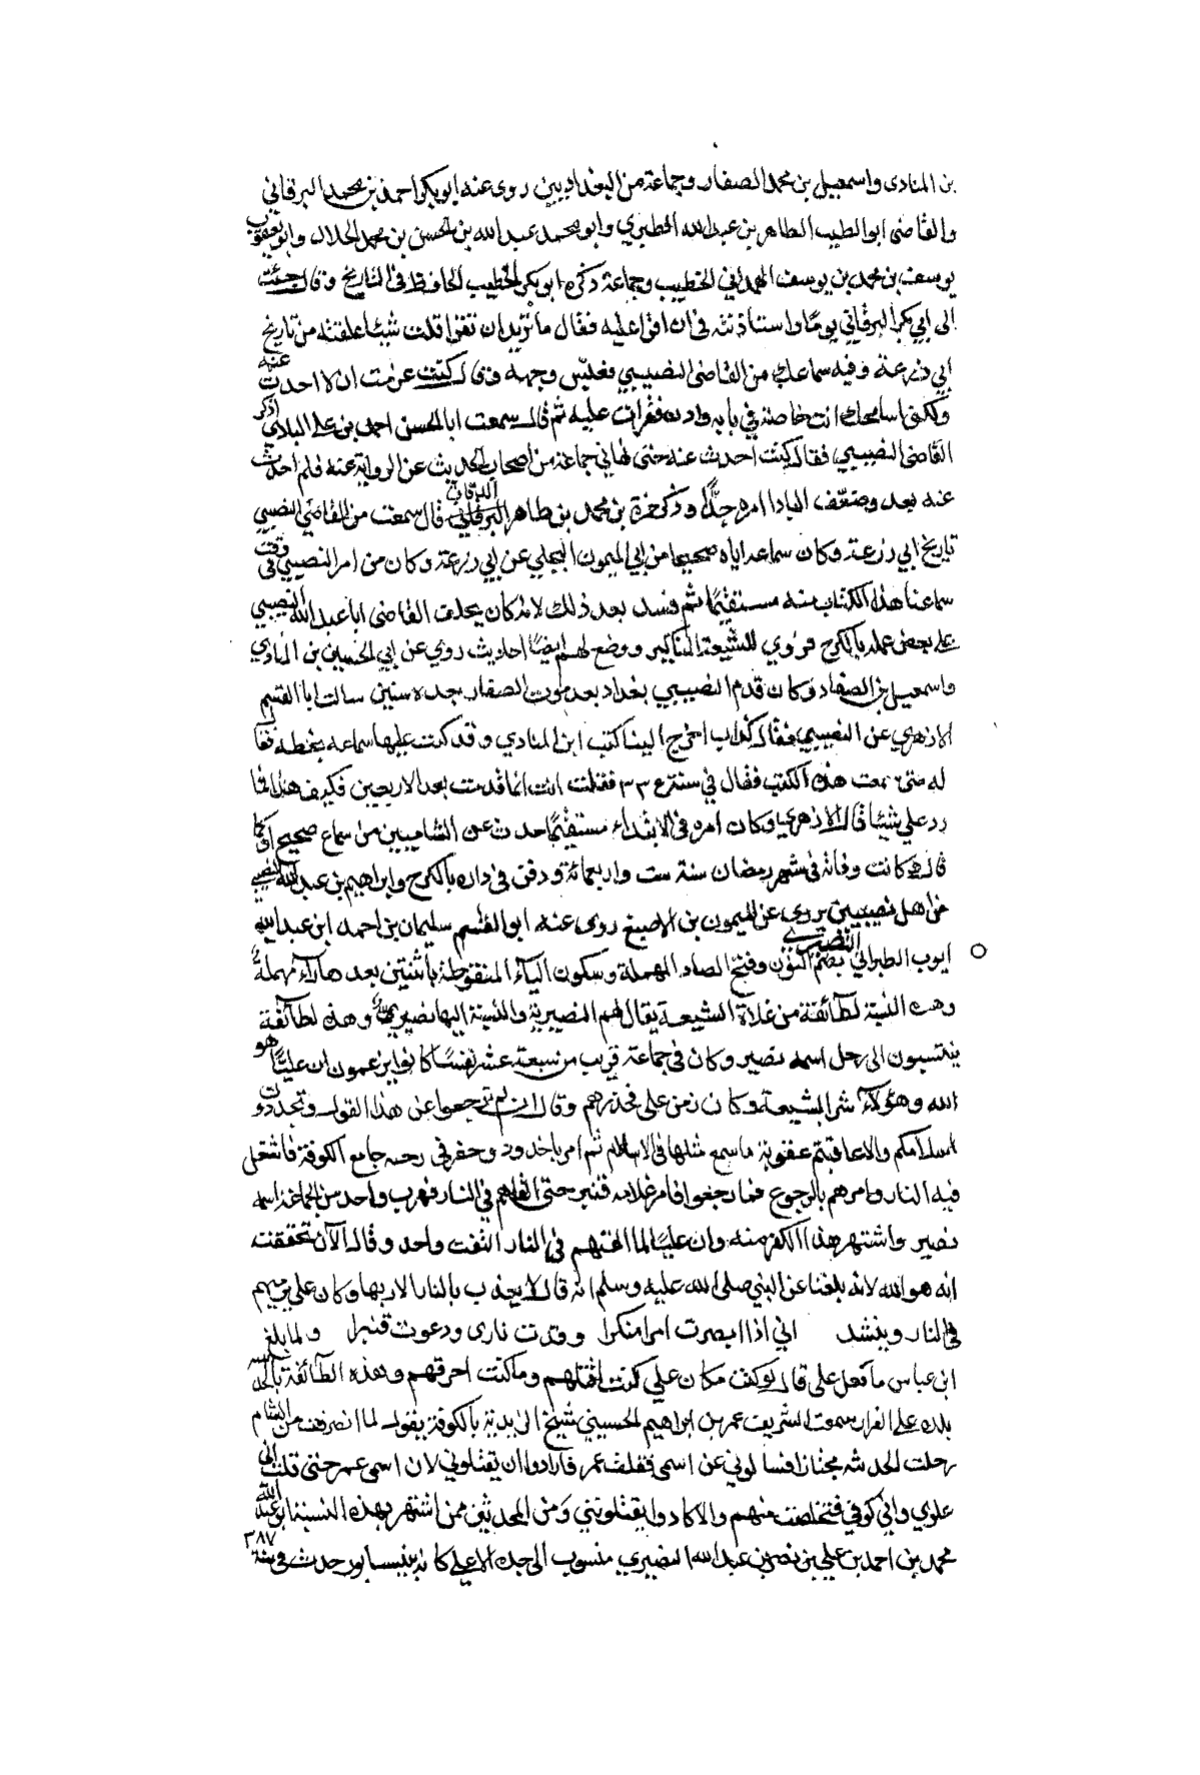 بن المنادى واسمعيل بن محمد الصفار وجماعة من البغداديين روى عنه ابو بكر احمد بن محمد البرقاني
والقاضى ابو الطيب الطاهر بن عبد الله الطبري وابو محمد عبد الله بن الحسن بن محمد الخلال وابو يعقوب
يوسف بن محمد بن يوسف الهمداني الخطيب وجماعة ذكره ابو بكر الخطيب الحافظ فى التاريخ وقال جئت
الى ابي بكر البرقاني يومًا واستاذنته فى ان اقرا عليه فقال ما تريد ان تقرا قلت شيئا علقته من تاريخ
ابي زرعة وفيه سماعك من القاضى النصيبي فعبّس وجهه وقال كنت عزمت ان لا احدث عنه
ولكنى اسامحك انت خاصة في بابه فقرات عليه ثم قال سمعت ابا الحسن احمد بن على البادي ذكر
القاضى النصيبي فقال كنت احدث عنه حتى نهاني جماعة من اصحاب الحديث عن الرواية عنه فلم احدث
عنه بعد وضعّف البادا امره جدًّا وذكر حمزة بن محمد بن طاهر الدقاق قال سمعت من القاضي النصيبي
تاريخ ابي زرعة وكان سماعه اياه صحيحا من ابي الميمون البجلي عن ابي زرعة وكان من امر النصيبي فى وقت
سماعنا هذا الكتاب منه مستقيمًا ثم فسد بعد ذلك لانه كان يخلف القاضى ابا عبد الله النصيبي
على بعض عمله بالكرخ فروي للشيعة المناكير ووضع لهم ايضًا احاديث روي عن ابي الحسين بن المنادي
واسمعيل بن الصفار وكان قدم النصيبي بغداد بعد موت الصفار بعده سنين سالت ابا القسم
الازهري عن النصيبي فقال كذاب اخرج الينا كتب ابن المنادي وقد كتب عليها سماعه بخطه فقلنا
له متى سمعت هذه الكتب فقال في سنة ٣٣ فقلت انت انما قدمت بعد الاربعين فكيف هذا فما
رد علي شيئا قال الازهري وكان امره فى الابتداء مستقيمًا حدث عن الشاميين من سماع صحيح او كما
قال وكانت وفاته فى شهر رمضان سنة ست واربعمائة ودفن فى داره بالكرخ وابراهيم بن عبد الله النصيبي
من اهل نصيبين يروى عن الميمون بن الاصبغ روى عنه ابو القسم سليمان بن احمد ابن عبد الله
ايوب الطبراني النصيرى بضم النون وفتح الصاد المهملة وسكون اليآء المنقوطة باثنتين بعدها رآء مهملةٌ
وهذه النسبة لطآئفة من غلاة الشيعة يقال لهم النصيرية والنسبة اليها نصيرى وهذه لطآئفة
ينتسبون الى رجل اسمه نصير وكان فى جماعة قريب من سبعة عشر نفسًا كانوا يزعمون ان عليًّا هو
الله وهؤلآء شر الشيعة وكان زمن على فحذرهم وقال ان لم ترجعوا عن هذا القول وتجددون
اسلامكم والا عاقبتكم عقوبة ما سمع مثلها فى الاسلام ثم امر باخدود وحفر فى رحبه جامع الكوفة فاشعل
فيه النار وامرهم بالرجوع فما رجعوا فامر غلامه قنبر حتى القاهم في النار فهرب واحد من الجماعة اسمه
نصير واشتهر هذا الكفر منه وان عليًا لما القهم فى النار التفت واحد وقال الآن تحققت
انه هو الله لانه بلغنا عن النبي صلى الله عليه وسلم انه قال لا يعذب بالنار الا ربها وكان على يرميهم
فى النار وينشد انى اذا ابصرت امرا منكرا وقدت نارى ودعوت قنبرا ولما بلغ
ابن عباس ما فعل على قال لو كنت مكان علي كنت اقتلهم وما كنت احرقهم وهذه الطآئفة بالحديثه
بلده على الفرات سمعت الشريف عمر بن ابراهيم الحسيني شيخ الزيدية بالكوفة يقول لما انصرفت من الشام
دخلت الحديثه مجتازا فسالوني عن اسمى فقلت عمر فارادوا ان يقتلوني لان اسمى عمر حتى قلت انى
علوي واني كوفي فتخلصت منهم والا كادوا يقتلونني وَمن المحدثين ممن اشتهر بهذه النسبة ابو عبد الله
محمد بن احمد بن علي بن نصير بن عبد الله النصيري منسوب الى جده الاعلى كان بنيسابور حدث فى سنة ٣٨٧